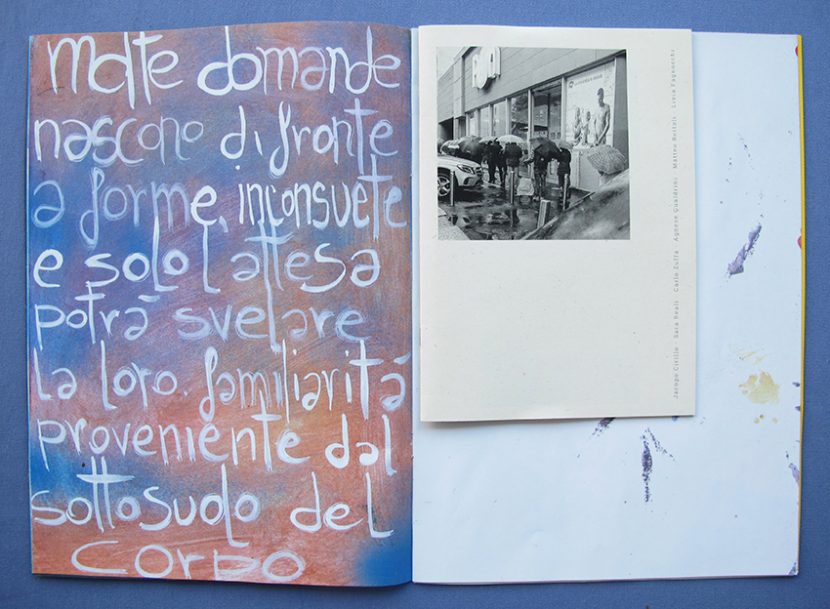 Molte domande
nascono di fronte
a forme, inconsuete
e solo l'attesa
potrà svelare
la loro. familiarità
proveniente dal
sottosuolo del
corpo
Jacopo Cirillo Sara Reali Carlo Zuffa Agnese Gualdrini Matteo Livia Fagnocchi